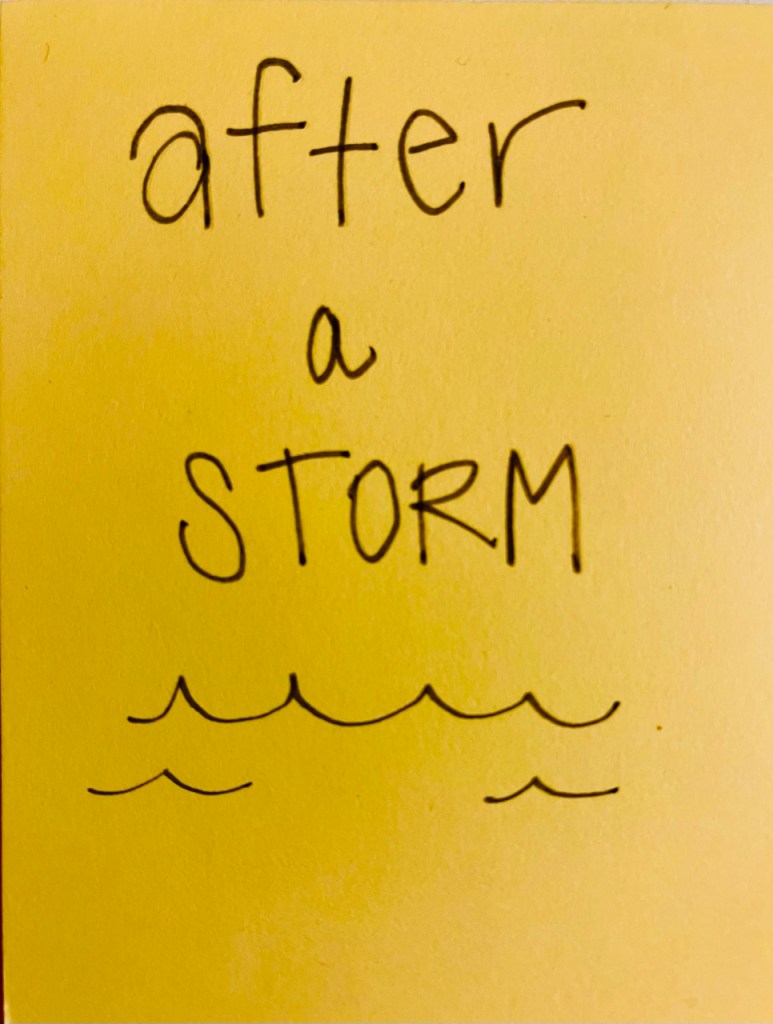 after
a
STORM